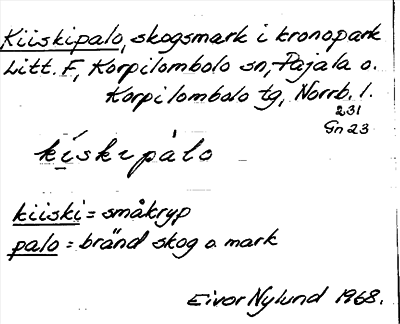 Kiiskipalo, skogsmark i kronopark
Litt. F, Korpilombolo sn, Pajala o.
Korpilombolo tg, Norrb. l.
231
Gn 23
kískipàlo
kiiski = småkryp
palo = bränd skog o. mark
Eivor Nylund 1968.